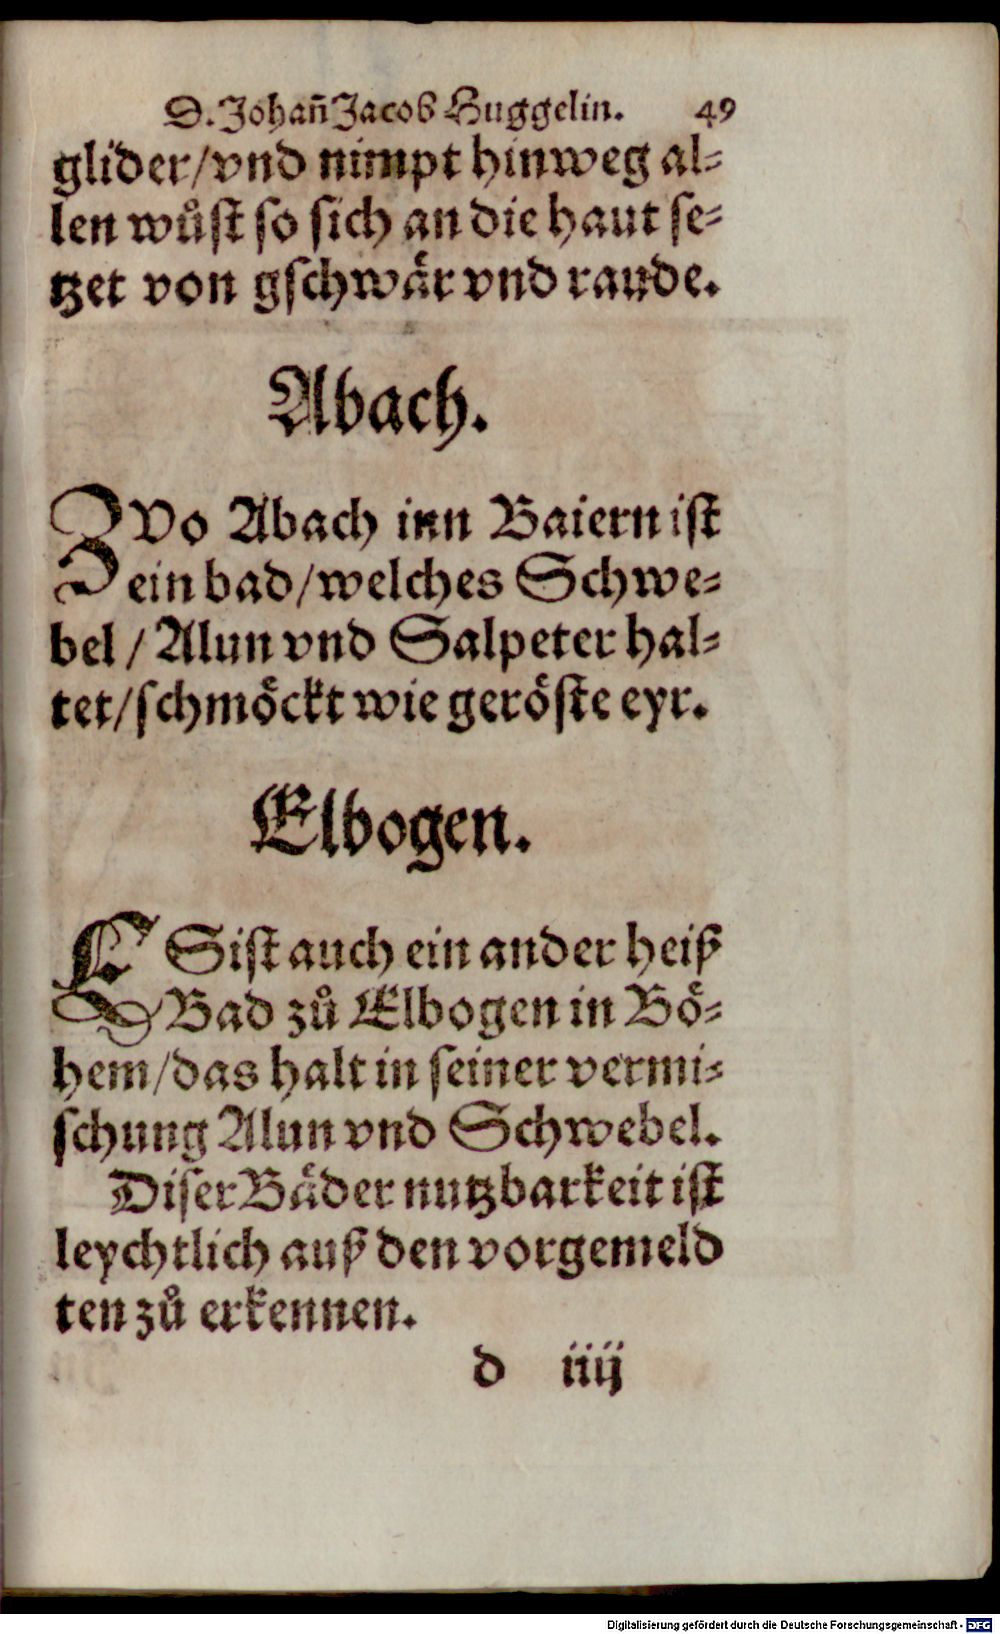 D. Johañ Jacob Huggelin. 49
glider/vnd nimpt hinweg al⸗
len wůſt so ſich an die haut ſe⸗
tzet von gſchwär vnd raude.
Abach.
ZVo Abach inn Baiern iſt
ein bad/welches Schwe⸗
bel/Alun vnd Salpeter hal⸗
tet/ſchmöckt wie geröſte eyr.
Elbogen.
ESiſt auch ein ander heiß
Bad zů Elbogen in Bö⸗
hem/das halt in ſeiner vermi⸗
ſchung Alun vnd Schwebel.
Diſer Bäder nutzbarkeit iſt
leychtlich auß den vorgemeld
ten zů erkennen.
d iiij
Digitalisierung gefördert durch die Deutsche Forschungsgemeinschaft - DFG